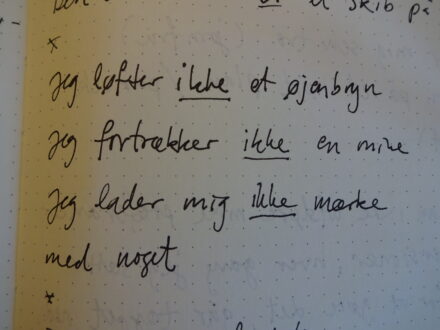 et skib på
*
Jeg løfter ikke et øjenbryn
Jeg fortrækker ikke en mine
Jeg lader mig ikke mærke
med noget
*